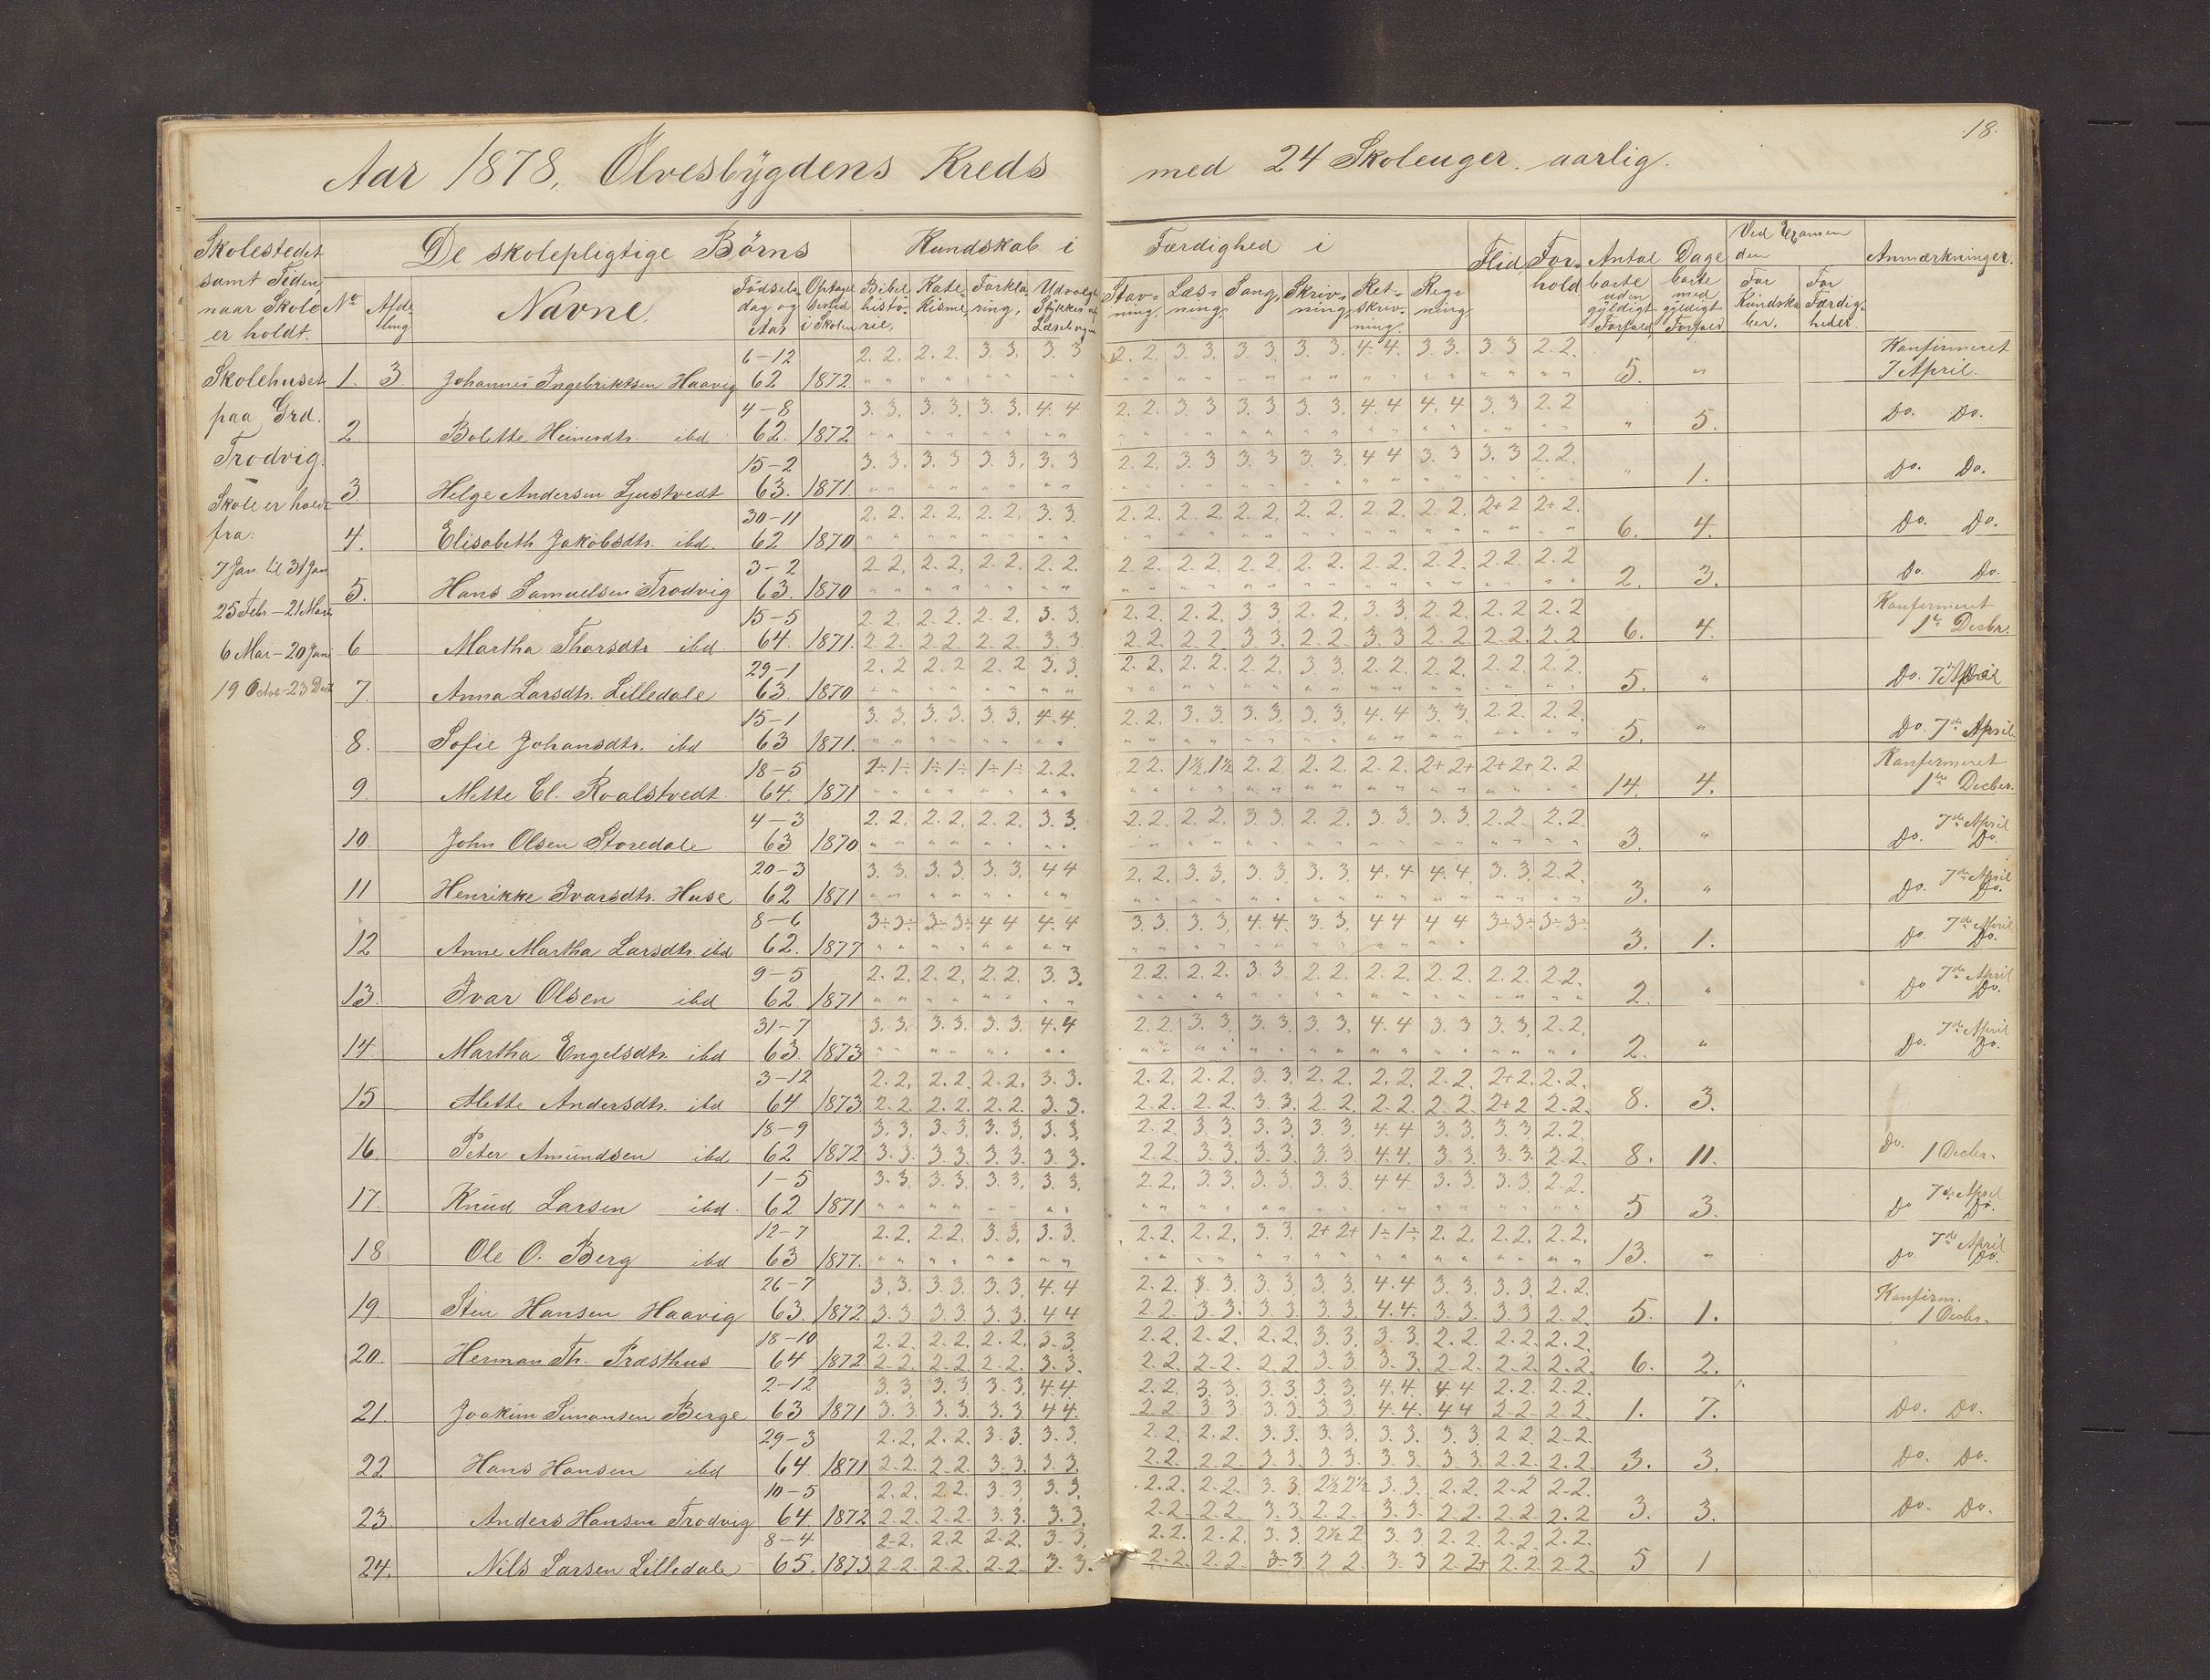 18.
Aar 1878, Ølvesbygdens Kreds med 24 Skoleuger aarlig.
Skolestedet samt Tiden naar Skole er holdt.
De skolepligtige Børns
Kundskab i
Færdighed i
Flid
Forhold
Antal Dage
Ved Examen den
Anmærkninger.
No Afdeling Navne Fødselsdag og Aar Bibelhistorie, Katekisme, Forklaring, Stavning, Læsning, Sang, Skrivning, Retskrivning, Regning
borte uden gyldigt Forfald borte med gyldigt Forfald For Kundskaber. For Færdigheder.
Skolehuset
paa Grd.
Trodvig.
Skole er holdt
fra:
7 Jan. til 31 Jan
25 Feb. – 21 Marts
6 Mai – 20 Juni
19 Octob – 23 Decb
6–12 2. 2. 2. 2. 3. 3. 3. 3 2. 2. 3. 3. 3. 3. 3. 3. 4. 4. 3. 3. 3 3 2. 2. Konfirmeret
1. 3 Johannes Ingebriktsen Haavig 62 1872 5. " 7 April.
4–8 3. 3. 3. 3. 3. 3. 4. 4 2. 2. 3. 3 3. 3 3. 3. 4. 4 4. 4 3. 3 2. 2
2 Bolette Heinesdtr. ibd 62. 1872 " 5. Do. Do.
15–2 3. 3. 3. 3 3. 3. 3. 3 2. 2. 3. 3 3. 3 3. 3. 4 4 3. 3 3. 3 2. 2.
3 Helge Andersen Ljustvedt 63. 1871. " 1. Do. Do.
30–11 2. 2. 2. 2. 2. 2. 3. 3. 2. 2. 2. 2 2. 2. 2. 2. 2. 2. 2. 2. 2+ 2 2+ 2.
4. Elisabeth Jakobsdtr. ibd. 62 1870 6. 4. Do. Do.
3–2 2. 2. 2. 2. 2. 2. 2. 2. 2. 2. 2. 2. 2. 2. 2. 2. 2. 2. 2. 2. 2. 2. 2. 2
5. Hans Samuelsen Trodvig 63. 1870 2. 3. Do. Do.
15–5 2. 2. 2. 2. 2. 2. 3. 3. 2. 2. 2. 2. 3 3. 2. 2. 3. 3. 2. 2. 2. 2 2. 2 Konfirmeret
6 Martha Thorsdtr ibd 64. 1871. 2. 2. 2. 2 2. 2. 3. 3. 2. 2. 2. 2. 3. 3 2. 2 3. 3 2. 2 2. 2. 2. 2 6. 4. 1te Decbr.
29–1 2. 2 2. 2 2. 2 3. 3. 2. 2. 2. 2. 2. 2. 3 3 2. 2. 2. 2. 2. 2. 2. 2.
7. Anna Larsdtr. Lilledale 63. 1870 5. " Do. 7de April
15–1 3. 3. 3. 3. 3. 3. 4. 4. 2. 2. 3. 3. 3. 3. 3. 3. 4. 4 3. 3. 2. 2. 2. 2.
8. Sofie Johansdtr. ibd 63 1871. 5. " Do. 7de April.
18–5 1÷ 1÷ 1÷ 1÷ 1÷ 1÷ 2. 2. 2 2. 1½. 1½ 2. 2 2. 2. 2. 2. 2+ 2+ 2+ 2+ 2. 2 Konfirmeret
9. Mette El. Roalstvedt 64. 1871 14. 4. 1te Decber.
4–3 2. 2. 2. 2. 2. 2. 3. 3. 2. 2. 2. 2. 3. 3 2. 2. 3. 3. 3. 3. 2. 2. 2. 2. 7de April
10. John Olsen Storedale 63 1870 3. " Do. Do.
20–3 3. 3. 3. 3. 3. 3. 4 4 2. 2. 3. 3. 3. 3 3. 3 4. 4 4. 4. 3. 3. 2. 2. 7de April
11 Henrikke Ivarsdtr. Huse 62 1871 3. " Do. Do.
8–6 3÷ 3÷ 3÷ 3÷ 4 4 4. 4 3. 3. 3. 3 4. 4. 3. 3. 4 4 4 4 3÷ 3÷ 3÷ 3÷ 7de April
12 Anne Martha Larsdtr. ibd 62. 1877 3. 1. Do. Do.
9–5 2. 2. 2. 2. 2. 2. 3. 3. 2. 2. 2. 2. 3. 3 2. 2. 2. 2. 2. 2. 2. 2. 2. 2. 7de April
13. Ivar Olsen ibd 62 1871 2. " Do Do.
31–7 3. 3. 3. 3. 3. 3. 4. 4 2. 2. 3. 3. 3. 3. 3. 3. 4. 4 3. 3 3. 3. 2. 2. 7de April
14 Martha Engelsdtr. ibd 63. 1873 2. " Do. Do.
3–12 2. 2. 2. 2. 2. 2. 3. 3. 2. 2. 2. 2. 3. 3. 2. 2. 2. 2. 2. 2. 2+ 2. 2. 2.
15 Alette Andersdtr. ibd 64 1873 2. 2. 2. 2. 2. 2. 3. 3. 2. 2. 2. 2. 3. 3. 2. 2. 2. 2. 2. 2. 2+ 2 2. 2. 8. 3.
18–9 3. 3. 3. 3. 3. 3. 3. 3. 2. 2 3. 3. 3. 3. 3. 3. 4. 4 3. 3. 3. 3 2. 2.
16. Peter Amundsen ibd 62 1872 3. 3. 3. 3. 3. 3. 3. 3. 2. 2 3. 3. 3. 3. 3. 3 4. 4. 3. 3. 3. 3. 2. 2. 8. 11. Do. 1 Decbr.
1–5 3. 3. 3. 3. 3. 3. 3. 3. 2. 2. 3. 3. 3. 3. 3. 3. 4 4 3. 3. 3. 3 2. 2. 7de April
17. Knud Larsen ibd. 62 1871 5 3. Do Do.
12–7 2. 2. 2. 2. 3. 3. 3. 3. 2. 2. 2. 2. 3. 3 2+ 2+ 1÷ 1÷ 2. 2. 2. 2. 2. 2. 7de April
18 Ole O. Berg ibd 63 1877. 13. " Do. Do.
26–7 3. 3. 3. 3. 3. 3. 4. 4 2. 2. 3. 3. 3. 3. 3. 3. 4. 4 3. 3. 3. 3. 2. 2. Konfirm.
19. Sten Hansen Haavig 63. 1872 3. 3. 3. 3. 3. 3. 4 4 2 2. 3. 3. 3. 3. 3. 3. 4. 4. 3. 3. 3. 3 2. 2 5. 1. 1 Decbr.
18–10 2. 2. 2. 2. 2. 2. 3. 3 2. 2. 2. 2. 2. 2 3. 3. 3. 3. 2. 2. 2. 2. 2. 2.
20. Herman Th. Præsthus 64 1872 2. 2. 2. 2. 2. 2. 3. 3. 2. 2. 2. 2. 2 2 3. 3 3. 3. 2. 2. 2. 2. 2. 2. 6. 2.
2–12 3. 3. 3. 3. 3. 3. 4. 4. 2. 2. 3. 3. 3. 3. 3. 3. 4. 4. 4. 4 2. 2. 2. 2.
21. Joakim Simonsen Berge 63 1871 3. 3. 3. 3. 3. 3 4 4. 2. 2 3 3 3. 3. 3. 3 4. 4. 4 4 2. 2 2. 2. 1. 7. Do. Do.
29–3 2. 2. 2. 2. 3. 3. 3. 3. 2. 2. 2. 2. 3. 3. 3. 3. 3. 3. 3. 3 2 2 2. 2.
22 Hans Hansen ibd 64. 1871 2. 2. 2. 2. 3. 3. 3. 3. 2. 2. 2 2. 3. 3. 3. 3. 3. 3 3. 3 2. 2. 2. 2 3. 3. Do. Do.
10–5 2. 2. 2 2. 3. 3 3. 3. 2. 2. 2. 2. 3. 3 2½ 2½ 3. 3 2. 2. 2. 2 2. 2.
23. Anders Hansen Trodvig 64 1872 2. 2. 2. 2. 3. 3. 3. 3. 2. 2. 2. 2. 3. 3 2. 2. 3. 3. 2. 2. 2. 2. 2. 2 3. 3. Do. Do.
8–4 2. 2. 2. 2 2. 2. 3. 3. 2. 2. 2. 2. 3. 3. 2½ 2 3. 3 2. 2. 2. 2. 2. 2.
24. Nils Larsen Lilledale 65. 1873 2. 2. 2. 2. 2. 2. 3. 3. 2. 2. 2. 2. 3. 3 2 2. 3. 3 2. 2+ 2. 2. 2. 2. 5 1